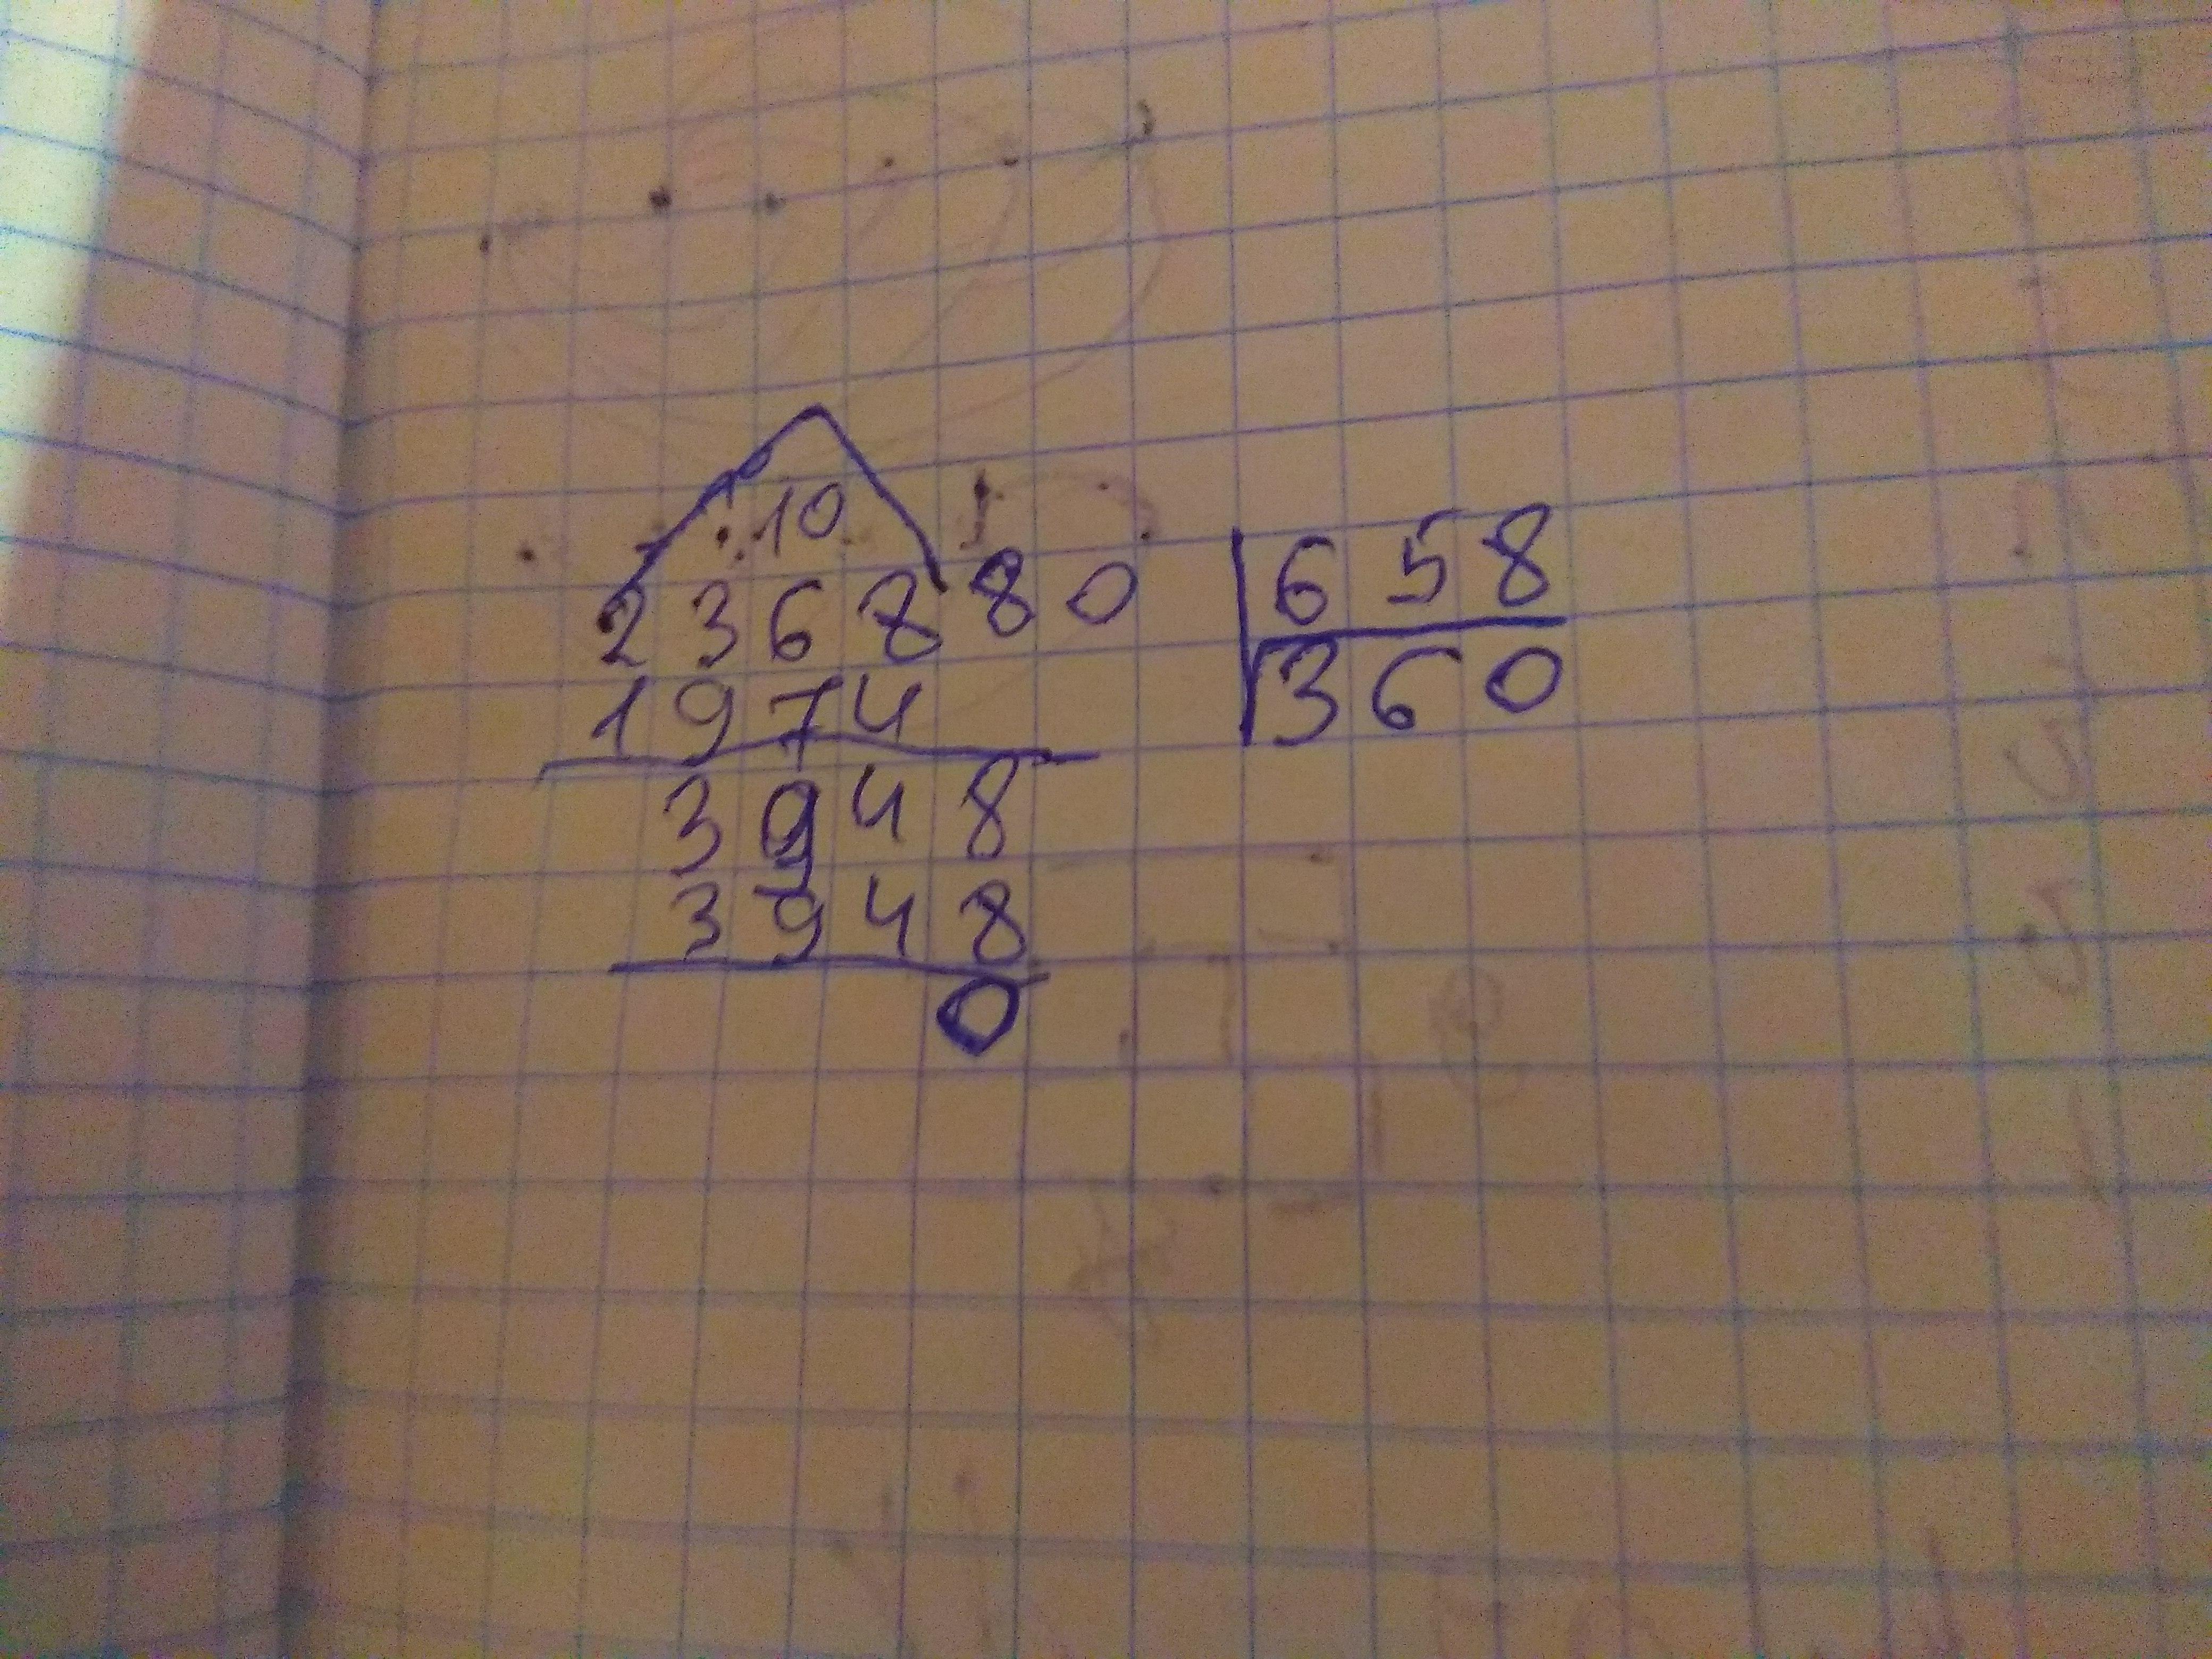 10
236880 658
1974 360
3948
3948
0